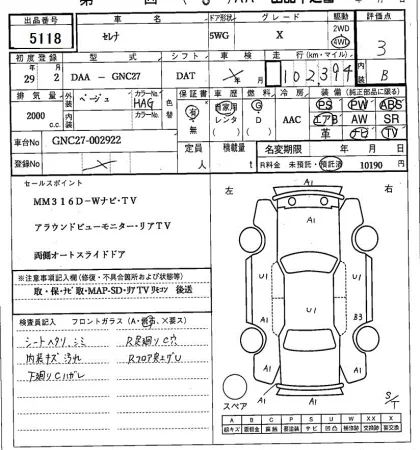 出品番号 車名 ドア形状 グレード 駆動 評価点
5118 セレナ 5WG X 2WD 4WD 3
初度登録 型式 シフト 車検 走行(km・マイル) 内装
29年 2月 DAA-GNC27 DAT ×年 月 102,394 B
排気量 外装 ベージュ カラーNo. HAG 色替 保証書 車歴 燃料 冷房 装備(純正部品に限る)
2000 c.c. 内装 カラーNo. 有 無 自家用 レンタ G D AAC PS PW ABS
エアB AW SR
革 ナビ TV
車台No GNC27-002922 定員 人 積載量 t 名変期限 年 月 日
登録No × R料金 未預託・預託済 10190 円
セールスポイント
MM316D-Wナビ・TV
アラウンドビューモニター・リアTV
両側オートスライドドア
※注意事項記入欄(修復・不具合箇所および状態等)
取・保・ナビ取・MAP-SD・リアTVリモコン 後送
検査員記入 フロントガラス(A・飛石、×要ス)
シートヘタリ、シミ R足廻りC穴
内装キズ汚れ Rフロア突上ゲU
下廻りCハガレ
左 右
A1
A1 A1
U1 U1 U1
A1 B3
A1
A1
スペア S/T
A B C P S U W X XX
線キズ 要板金 腐蝕 要塗装 サビ 凹凸 補修跡 要交換 交換跡